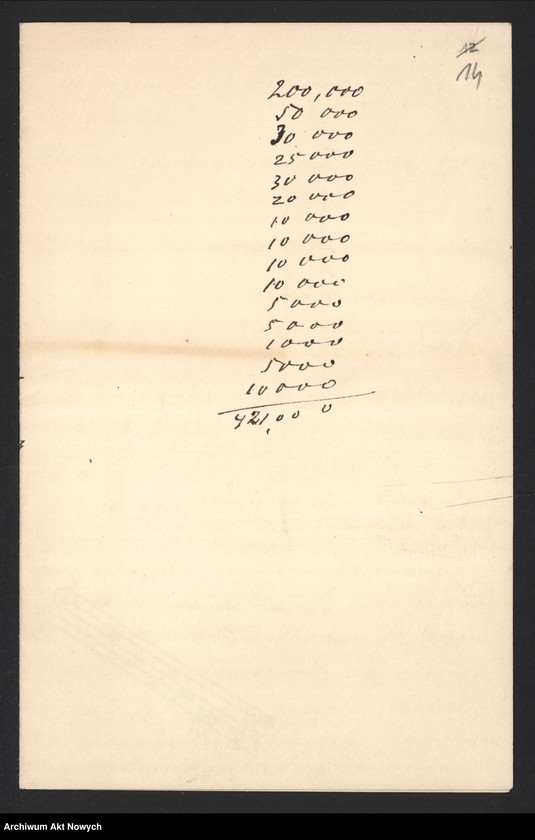 12
14
200,000
50 000
30 000
25 000
30 000
20 000
10 000
10 000
10 000
10 000
5 000
5 000
1 000
5000
10 000
421,000
Archiwum Akt Nowych